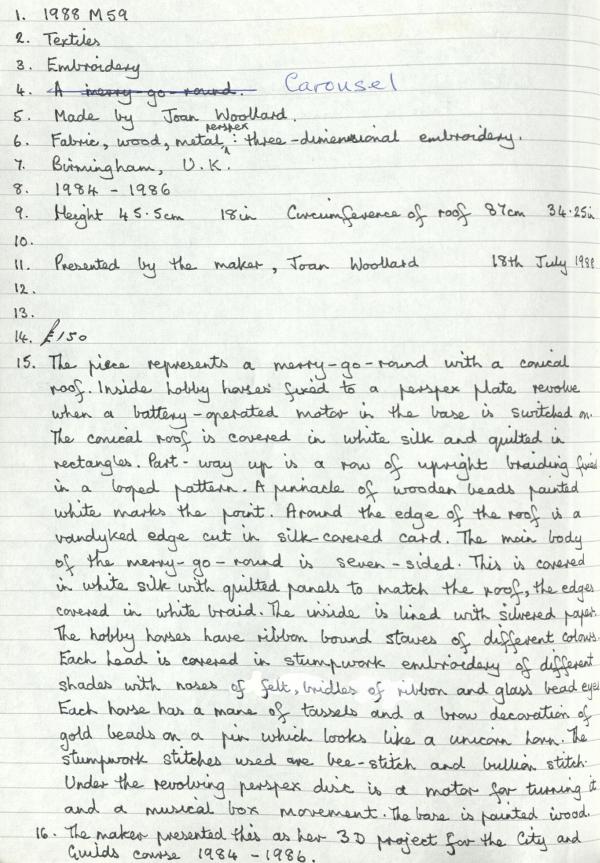 1. 1988 M59
2. Textiles
3. Embroidery
4. A merry-go-round. Carousel
5. Made by Joan Woollard.
perspex
6. Fabric, wood, metal, : three-dimensional embroidery.
7. Birmingham, U.K.
8. 1984 - 1986
9. Height 45.5cm 18in Circumference of roof 87cm 34.25in
10.
11. Presented by the maker, Joan Woollard 18th July 1988
12.
13.
14. £150
15. The piece represents a merry-go-round with a conical
roof. Inside hobby horses fixed to a perspex plate revolve
when a battery-operated motor in the base is switched on.
The conical roof is covered in white silk and quilted in
rectangles. Part-way up is a row of upright braiding fixed
in a looped pattern. A pinnacle of wooden beads painted
white marks the point. Around the edge of the roof is a
vandyked edge cut in silk-covered card. The main body
of the merry-go-round is seven-sided. This is covered
in white silk with quilted panels to match the roof, the edges
covered in white braid. The inside is lined with silvered paper.
The hobby horses have ribbon bound staves of different colours.
Each head is covered in stumpwork embroidery of different
shades with noses of felt, bridles of ribbon and glass bead eyes
Each horse has a mane of tassels and a brow decoration of
gold beads on a pin which looks like a unicorn horn. The
stumpwork stitches used are bee-stitch and bullion stitch.
Under the revolving perspex disc is a motor for turning it
and a musical box movement. The base is painted wood.
16. The maker presented this as her 3D project for the City and
Guilds course 1984-1986.